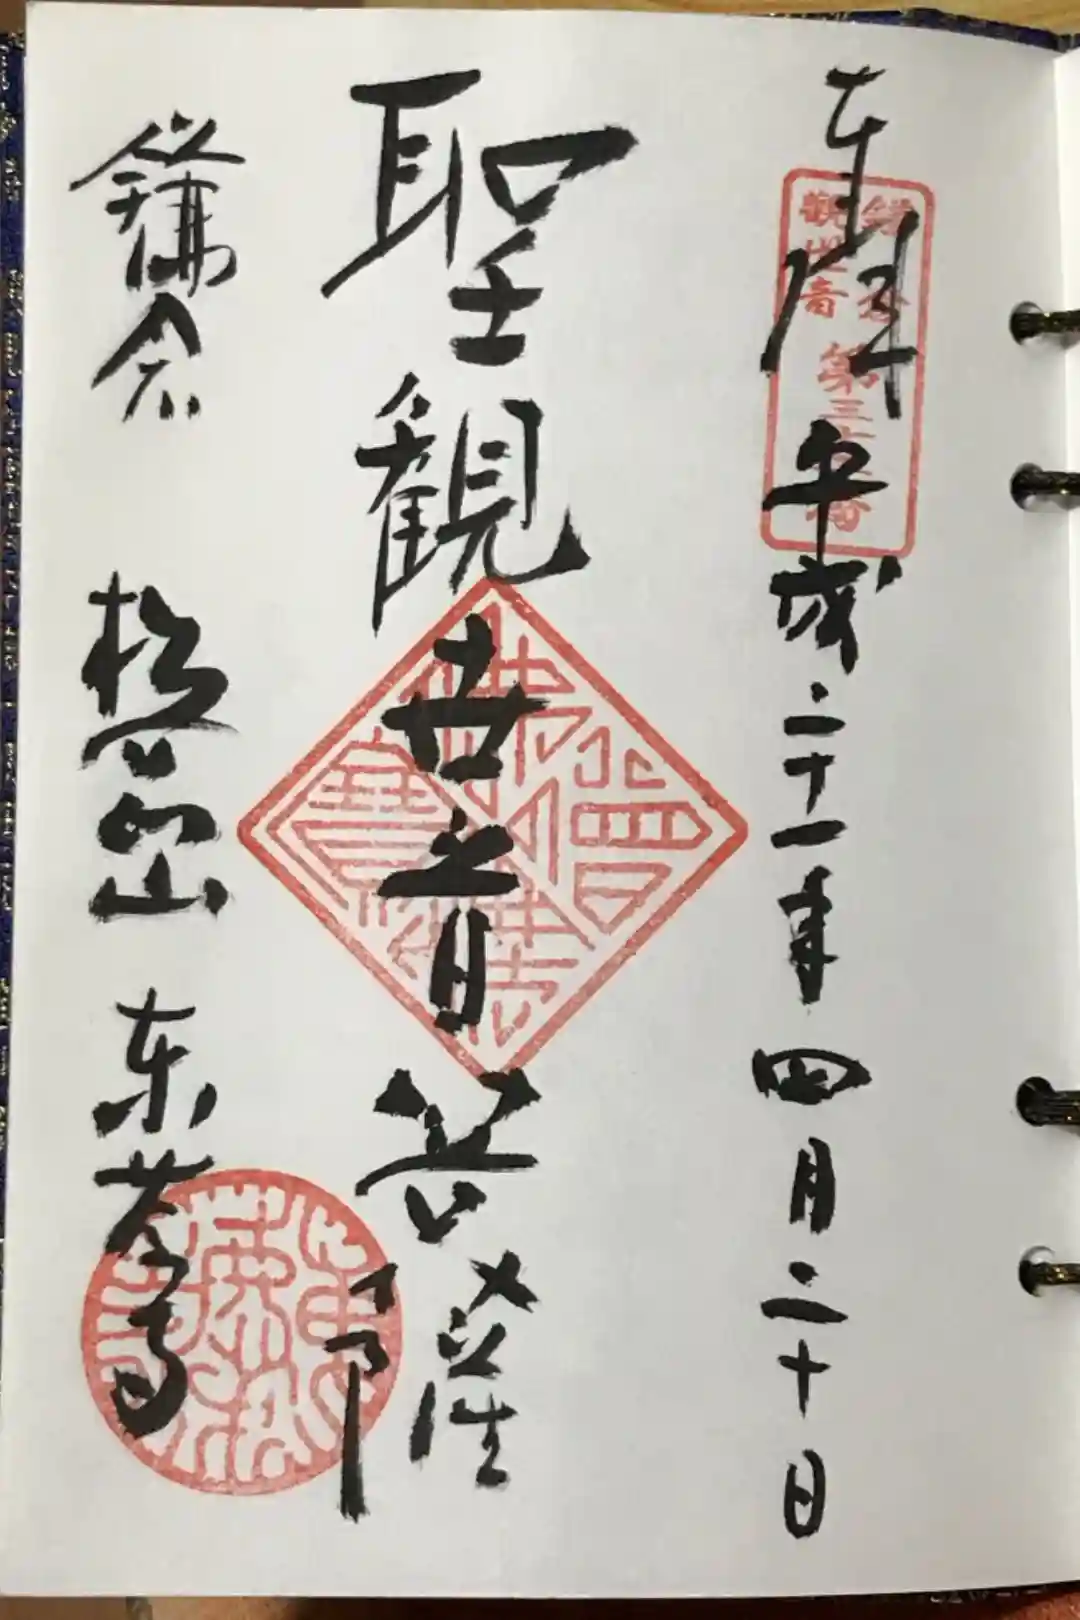 奉拝 平成二十一年四月二十日
鎌倉
觀世音
第三十二番
聖觀世音菩薩
佛法僧寶
鎌倉 松岡山 東慶寺